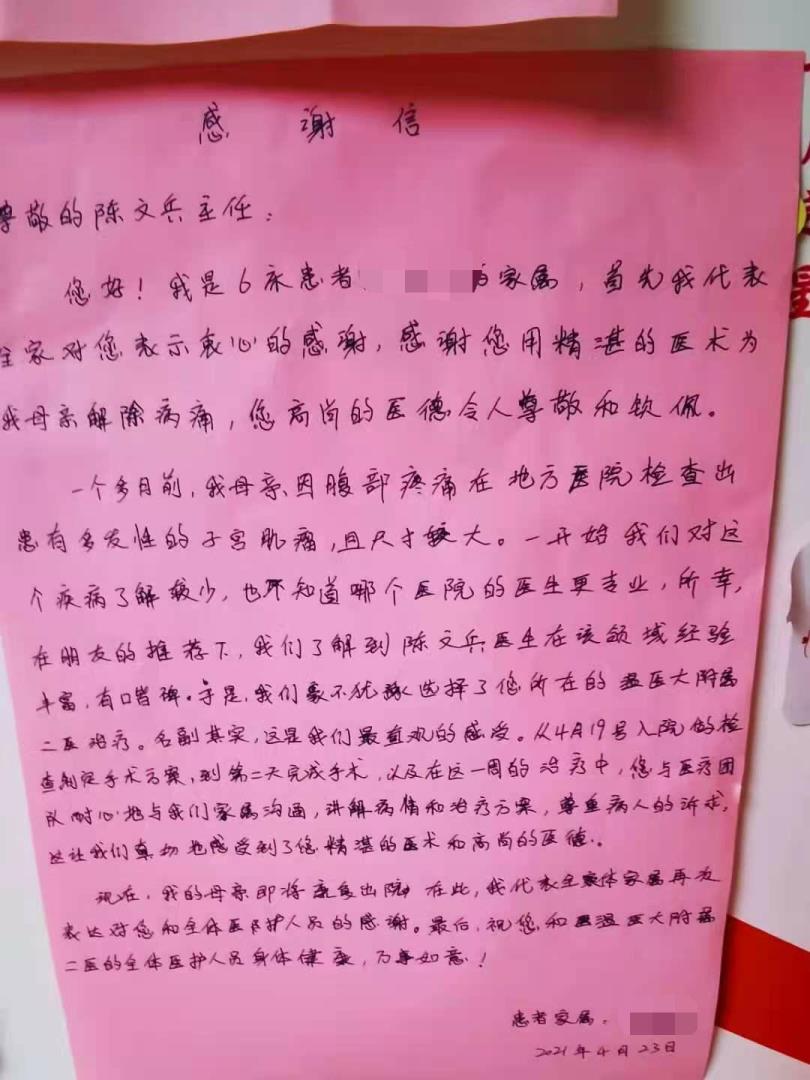 感谢信
尊敬的陈文兵主任：
您好！我是6床患者 家属，首先我代表
全家对您表示衷心的感谢，感谢您用精湛的医术为
我母亲解除病痛，您高尚的医德令人尊敬和钦佩。
一个多月前，我母亲因腹部疼痛在地方医院检查出
患有多发性的子宫肌瘤，且尺寸较大。一开始我们对这
个疾病了解较少，也不知道哪个医院的医生更专业，所幸，
在朋友的推荐下，我们了解到陈文兵医生在该领域经验
丰富，有口皆碑。于是，我们毫不犹豫选择了您所在的温医大附属
二医治疗。名副其实，这是我们最直观的感受。从4月19号入院做检
查制定手术方案，到第二天完成手术，以及在这一周的治疗中，您与医疗团
队耐心地与我们家属沟通，讲解病情和治疗方案，尊重病人的诉求，
这让我们真切地感受到了您精湛的医术和高尚的医德。
现在，我的母亲即将康复出院，在此，我代表全体家属再次
表达对您和全体医护人员的感谢。最后，祝您和温医大附属
二医的全体医护人员身体健康，万事如意！
患者家属：
2021年4月23日